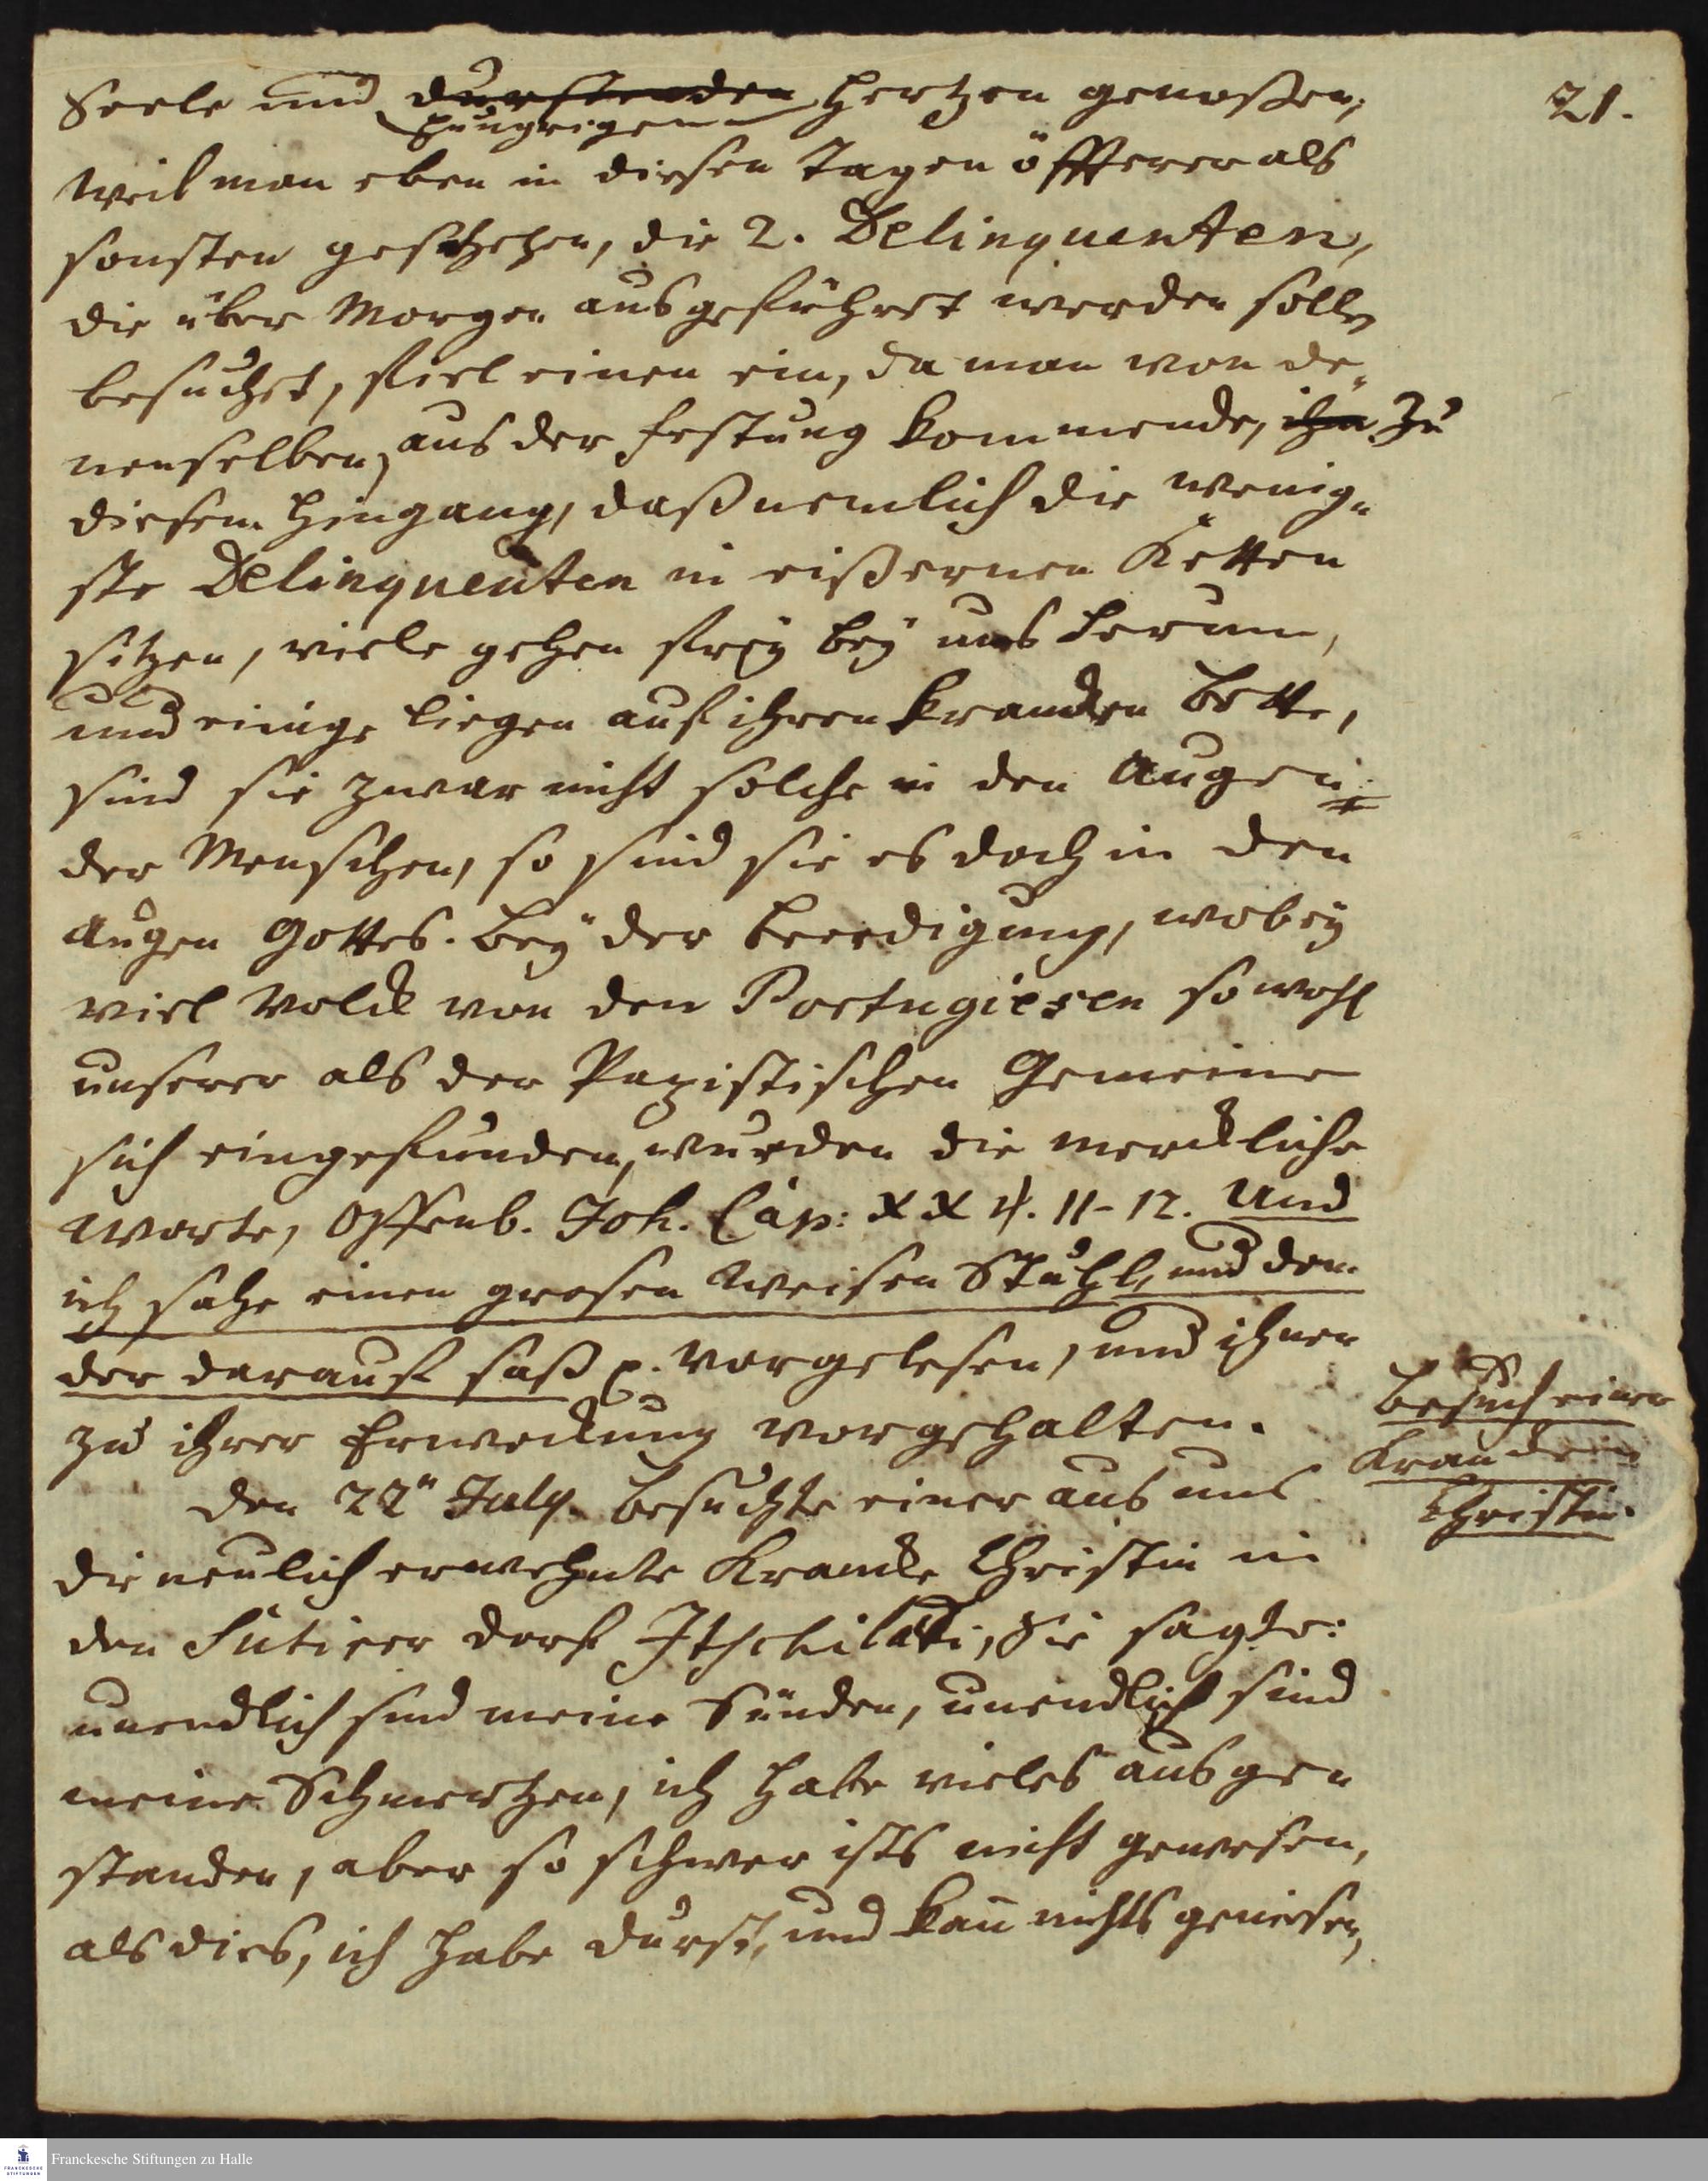 21.
Seele und durstenden Hertzen genoßen,
hungrigen
Weil man eben in diesen Tagen öffterer als
sonsten geschehen, die 2. Delinquenten,
die über Morgen ausgeführet werden solln
besuchet, fiel einen ein, da man von de-
nenselben, aus der Festung kommende, ihn zu
diesem Hingang, daß nemlich die wenig-
ste Delinquenten in eißernen Ketten
sitzen, viele gehen frey bey uns herum,
und einige liegen auf ihren Krancken Bette,
sind sie zwar nicht solche in den Augen
der Menschen, so sind sie es doch in den
Augen Gottes. Bey der Beerdigung, wobey
viel Volck von den Portugiesen so wohl
unserer als der Papistischen Gemeine
sich eingefunden, wurden die merckliche
Worte, Offenb. Joh. Cap: XX v. 11-12. Und
ich sahe einen grosen Weisen Stuhl, und den
der darauf saß p. vorgelesen, und ihnen
zu ihrer Erweckung vorgehalten.
Besuch einer
Krancken
Christin.
den 22n July. besuchte einer aus uns
die neulich erwehnte Krancke Christin in
den Sutirer dorf Itschiladi, Sie sagte:
unendlich sind meine Sünden, unendlich sind
meine Schmertzen, ich habe vieles ausge-
standen, aber so schwer ists nicht gewesen,
als dies, ich habe durst, und kan nichts geniesen,
Franckesche Stiftungen zu Halle